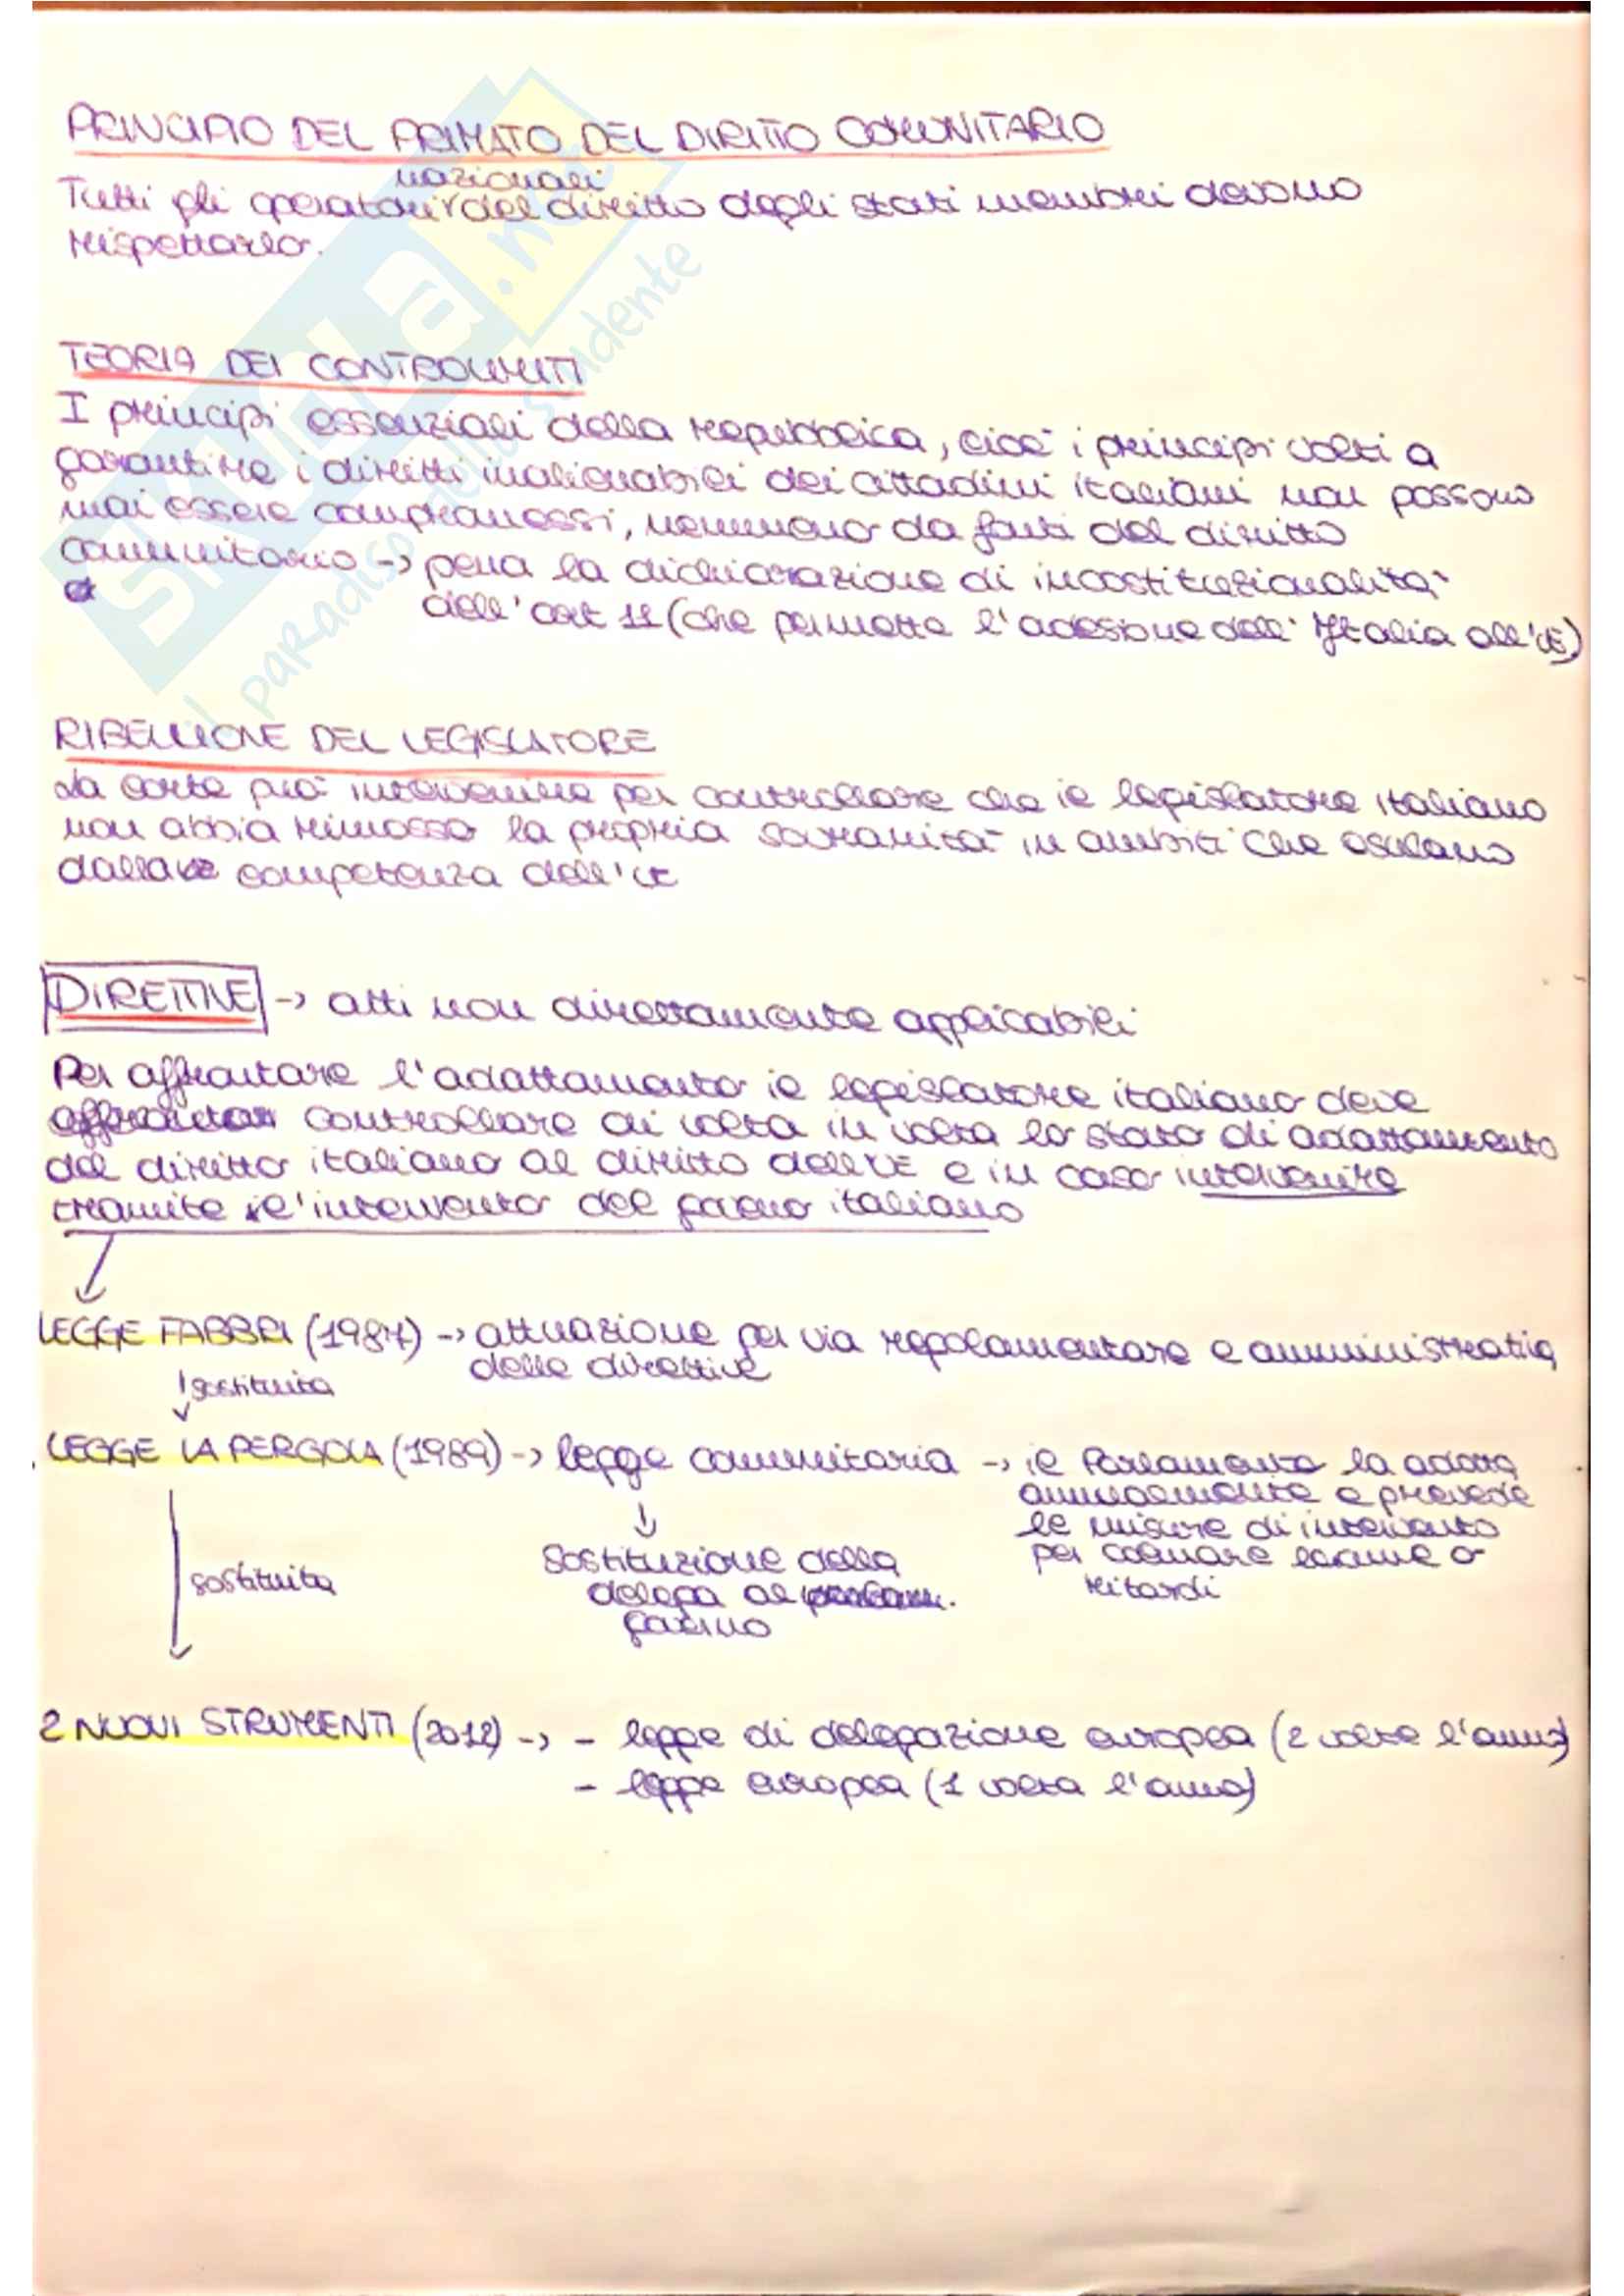 PRINCIPIO DEL PRIMATO DEL DIRITTO COMUNITARIO
nazionali
Tutti gli operatori del diritto degli stati membri devono
rispettarlo.
TEORIA DEI CONTROLIMITI
I principi essenziali della repubblica, cioè i principi volti a
garantire i diritti inalienabili dei cittadini italiani non possono
mai essere compromessi, nemmeno da fonti del diritto
comunitario -> pena la dichiarazione di incostituzionalità
dell'art 11 (che permette l'adesione dell'Italia all'UE)
RIBELLIONE DEL LEGISLATORE
La corte può intervenire per controllare che il legislatore italiano
non abbia rimosso la propria sovranità in ambiti che esulano
dalla competenza dell'UE
DIRETTIVE -> atti non direttamente applicabili
Per affrontare l'adattamento il legislatore italiano deve
controllare di volta in volta lo stato di adattamento
del diritto italiano al diritto dell'UE e in caso intervenire
tramite l'intervento del governo italiano
LEGGE FABBRI (1987) -> attuazione per via regolamentare e amministrativa
delle direttive
sostituita
LEGGE LA PERGOLA (1989) -> legge comunitaria -> il Parlamento la adotta
annualmente e prevede
le misure di intervento
per colmare lacune o
ritardi
sostituzione della
delega al
governo
sostituita
2 NUOVI STRUMENTI (2012) -> - legge di delegazione europea (2 volte l'anno)
- legge europea (1 volta l'anno)
SKUOLA.net
il paradiso dello studente